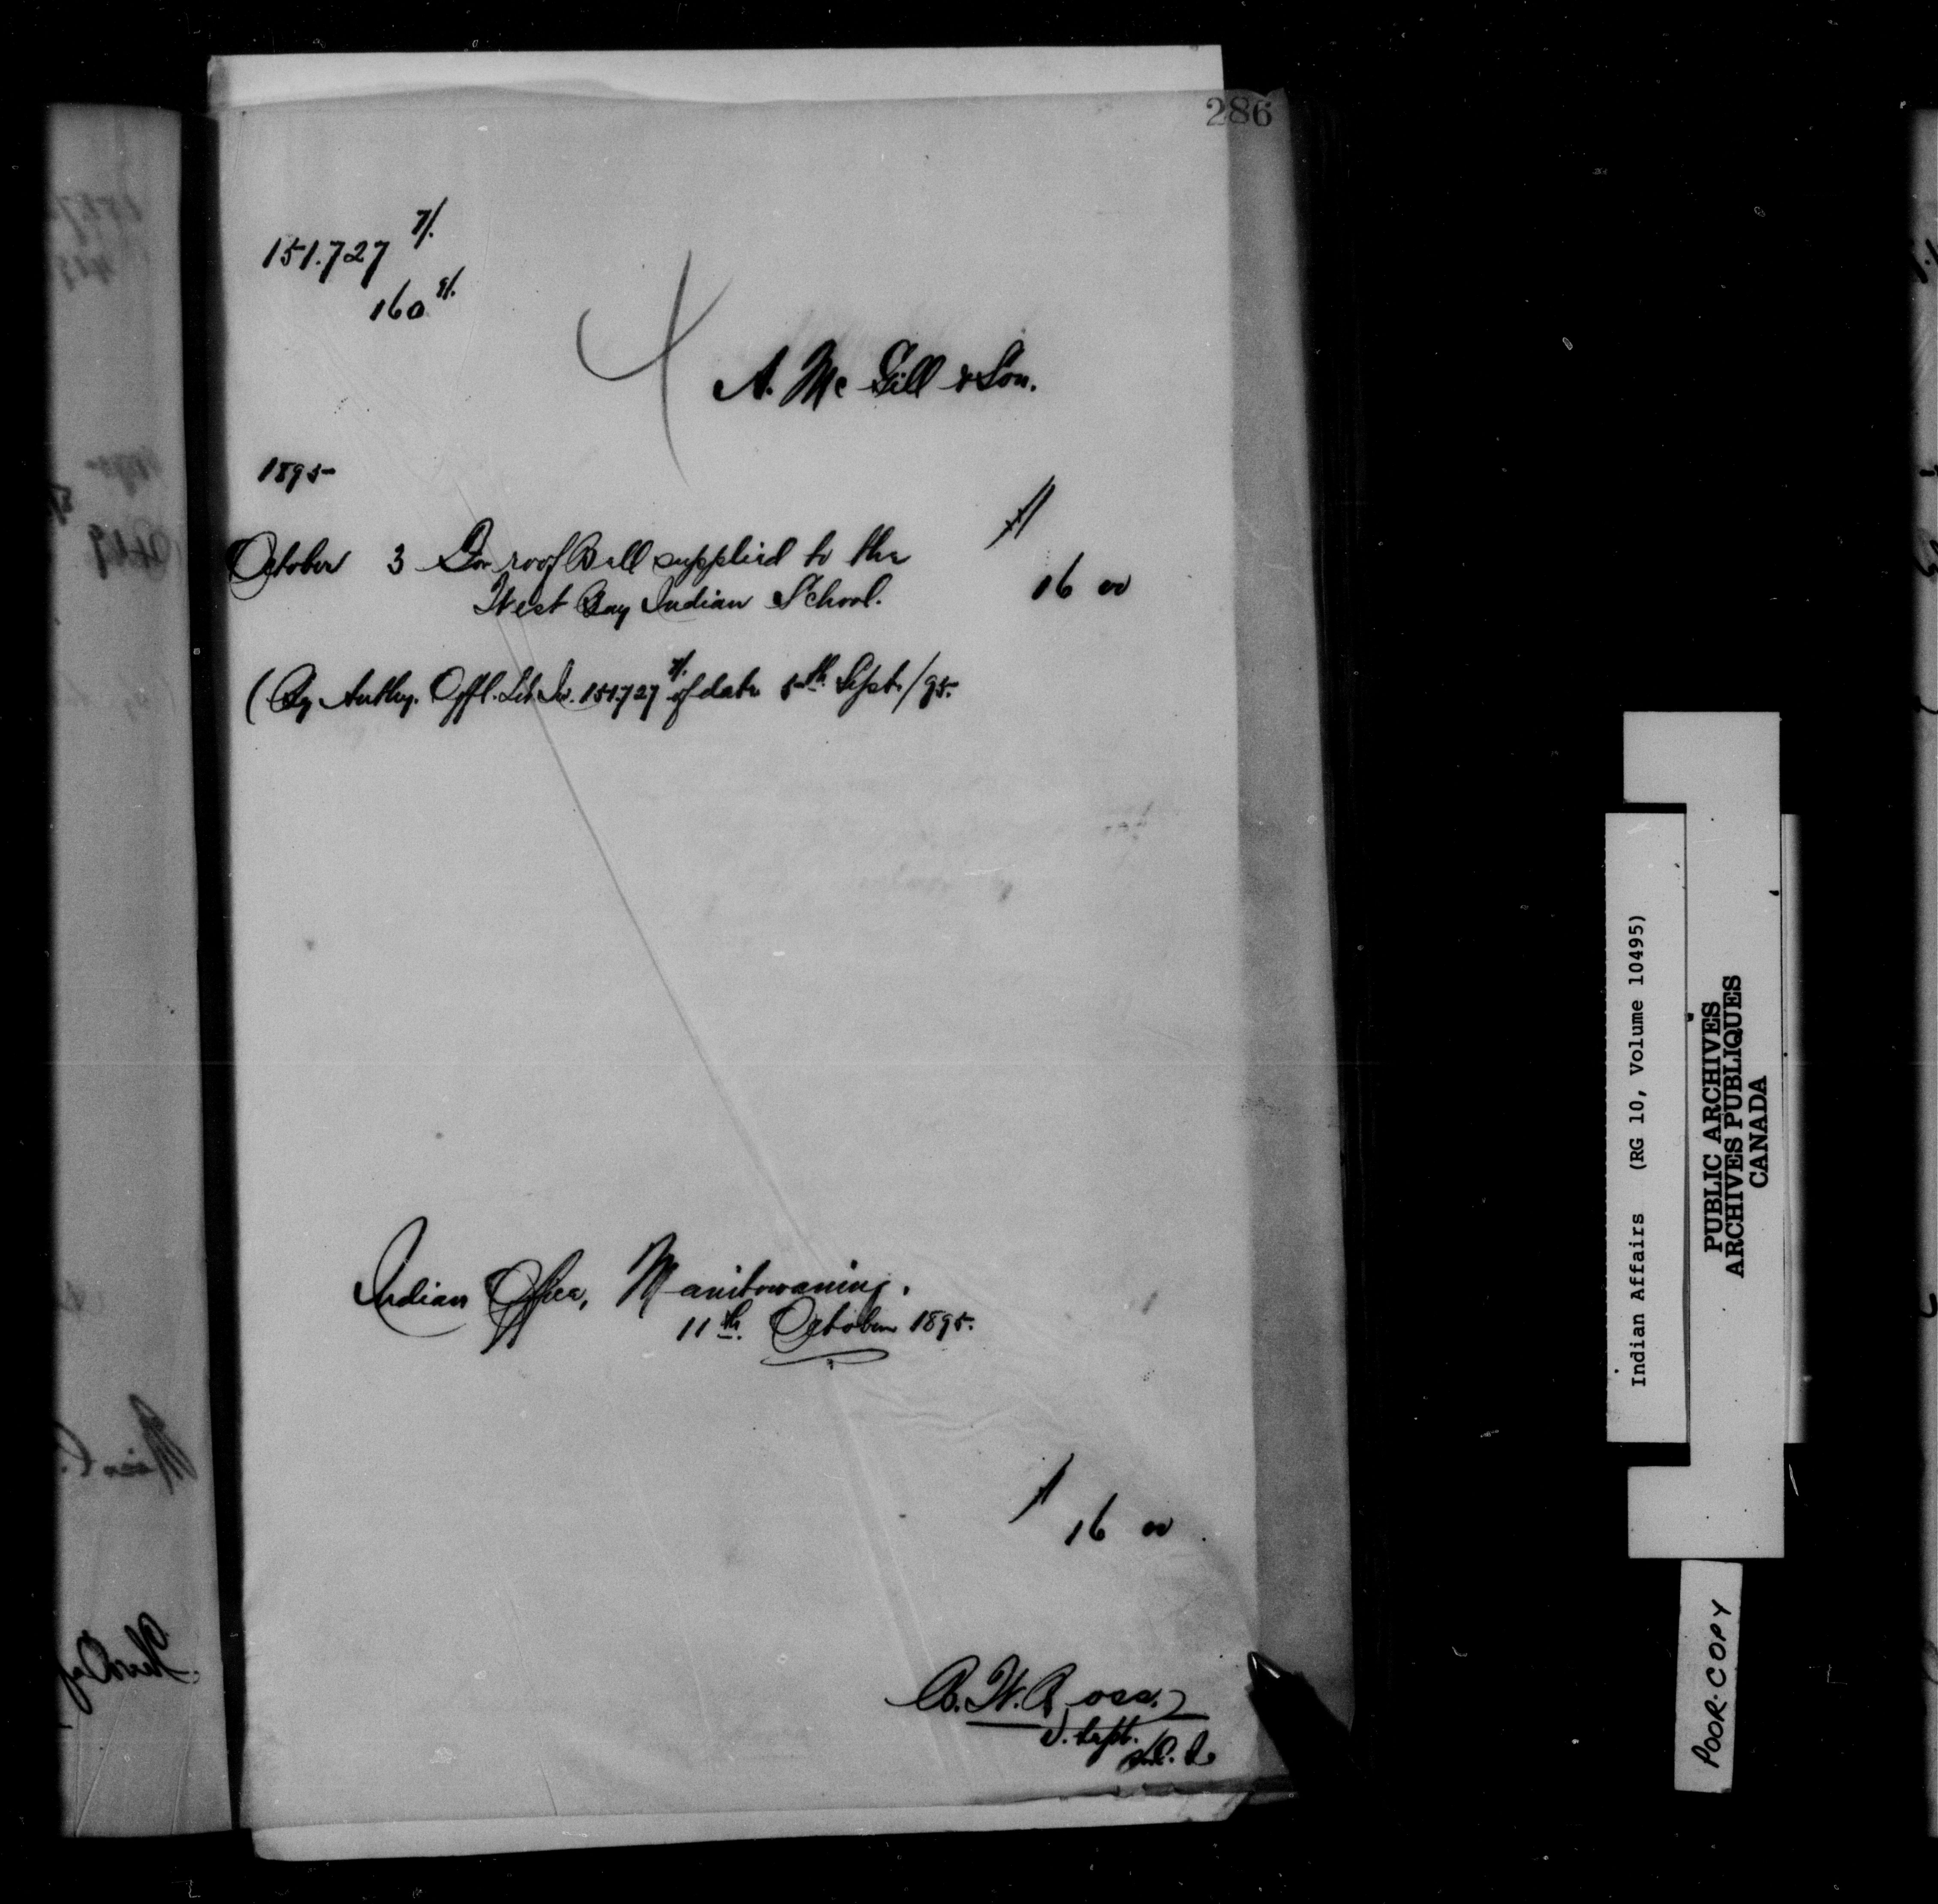 286
151.727 7/.
160 9/.
A. Mc Gill & Son.
1895
October 3 For roof Bell supplied to the
West Bay Indian School.
$
16 00
(By Authy. Offl. Let. No. 151.727 7/. of date 5th Sept./95.
Indian Office, Manitowaning.
11th. October 1895.
$ 16 00
B. W. Ross.
Indian Affairs (RG 10, Volume 10495)
PUBLIC ARCHIVES
ARCHIVES PUBLIQUES
CANADA
POOR COPY